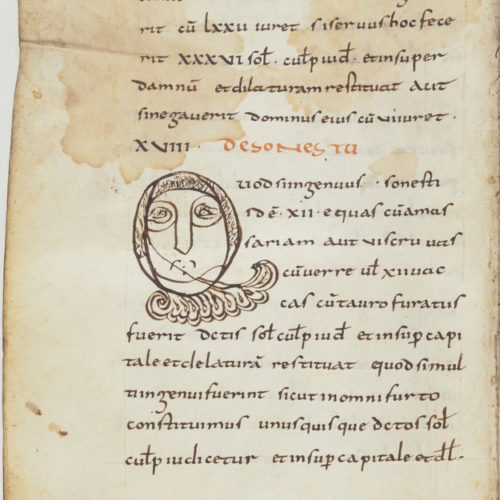 rit cū lxxii iuret si seruus hoc fece
rit xxxvi sol· culp iud· et insuper
damnū et dilaturam restituat aut
si negauerit dominus eius cū vi iuret·
XVIII· De sonesti
Quod si ingenuus· sonesti
id ē· xii· equas cū amis
sariam aut vi scruuas
cū uerre ul xii uac
cas cū tauro furatus
fuerit dctis sol culp iud et insup capi
tale et delaturā restituat quod si mul
ti ingenui fuerint sicut in omni furto
constituimus unusquisque dctos sol
culp iudicetur et insup capitale et dl·